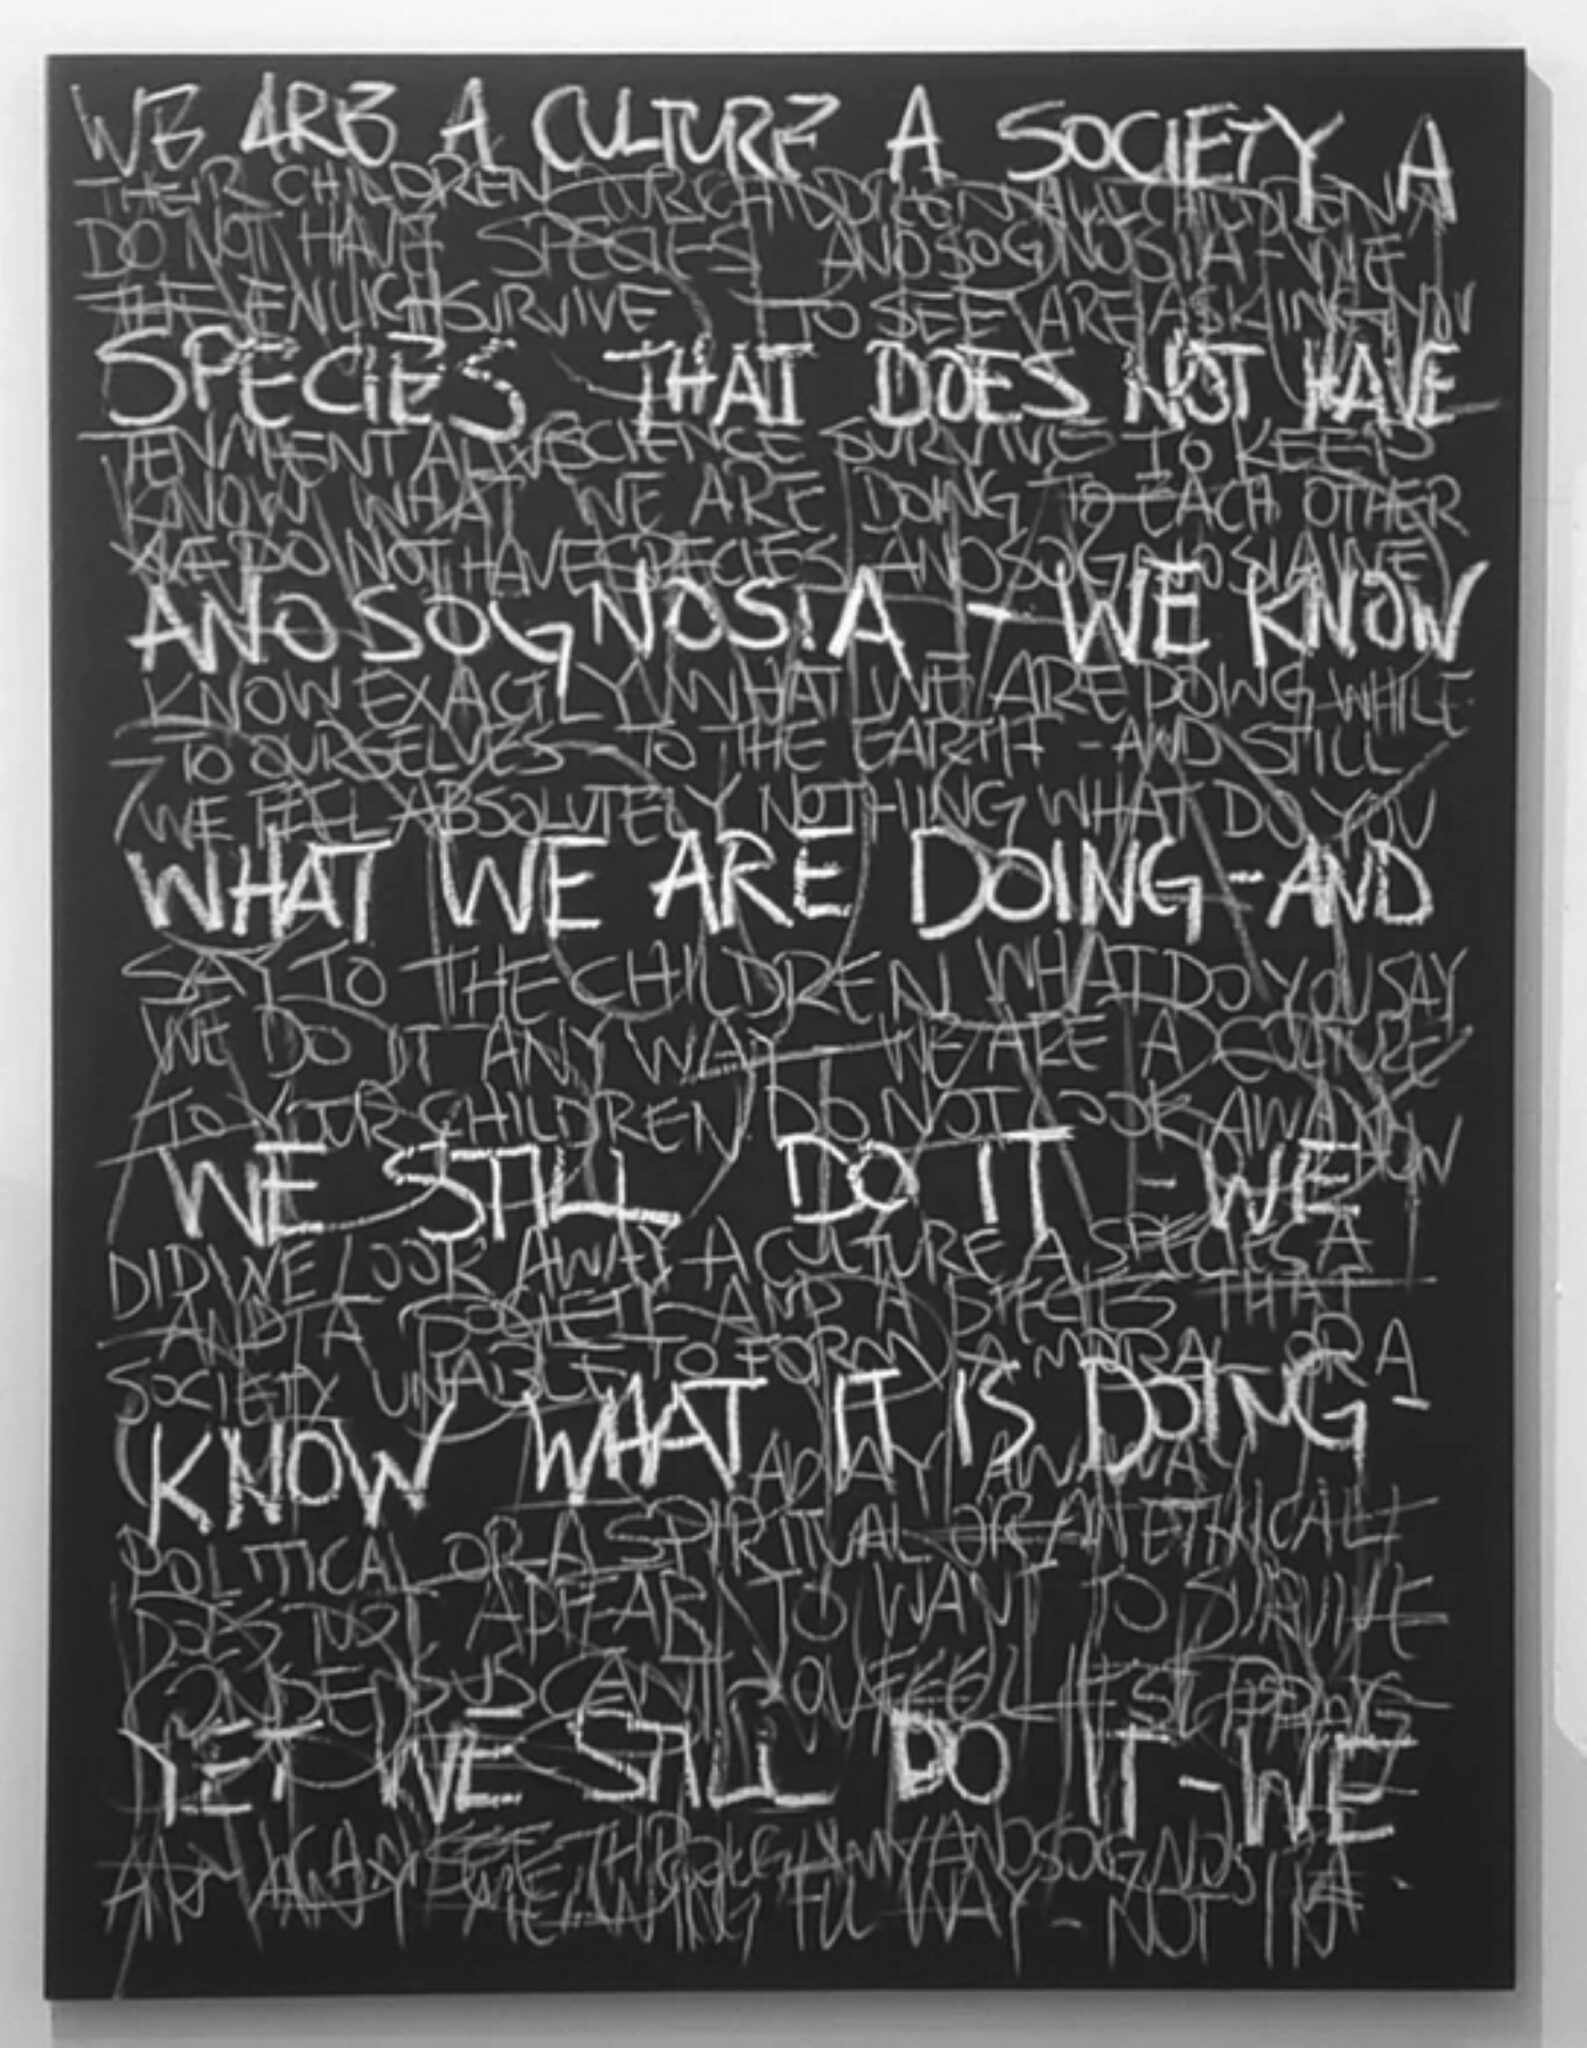 WE ARE A CULTURE A SOCIETY A
THEIR CHILDREN OUR CHILDREN ALL CHILDREN
DO NOT HAVE SPECIES ANOSOGNOSIA - WE
THE ENLIGH SURVIVE TO SEE ARE ASKING YOU
SPECIES THAT DOES NOT HAVE
TENMENT SCIENCE SURVIVE TO KEEP
KNOW WHAT WE ARE DOING TO EACH OTHER
WE DO NOT HAVE SPECIES ANOSOGNOSIA WE
ANOSOGNOSIA - WE KNOW
KNOW EXACTLY WHAT WE ARE DOING WHILE
TO OURSELVES TO THE EARTH - AND STILL
WE FEEL ABSOLUTELY NOTHING WHAT DO YOU
WHAT WE ARE DOING - AND
SAY TO THE CHILDREN WHAT DO YOU SAY
WE DO IT ANY WAY - WE ARE A CULTURE
TO YOUR CHILDREN DO NOT LOOK AWAY
WE STILL DO IT - WE
DID WE LOOK AWAY A CULTURE A SPECIES A
AND A SOCIETY AND A SPECIES THAT
SOCIETY UNABLE TO FORM A MORAL OR A
KNOW WHAT IT IS DOING -
POLITICAL OR A SPIRITUAL OR AN ETHICAL
DOES NOT APPEAR TO WANT TO SURVIVE
CONSENSUS CANT YOU FEEL IT
YET WE STILL DO IT - WE
I CAN SEE THROUGH MY ANOSOGNOSIA
ANY MEANINGFUL WAY - NOT IN